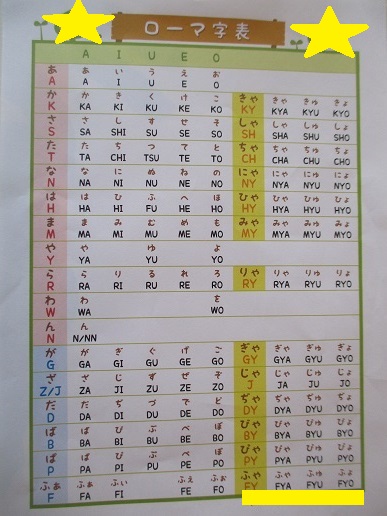 ローマ字表
A I U E O
あ あ い う え お
A A I U E O
か か き く け こ きゃ きゃ きゅ きょ
K KA KI KU KE KO KY KYA KYU KYO
さ さ し す せ そ しゃ しゃ しゅ しょ
S SA SHI SU SE SO SH SHA SHU SHO
た た ち つ て と ちゃ ちゃ ちゅ ちょ
T TA CHI TSU TE TO CH CHA CHU CHO
な な に ぬ ね の にゃ にゃ にゅ にょ
N NA NI NU NE NO NY NYA NYU NYO
は は ひ ふ へ ほ ひゃ ひゃ ひゅ ひょ
H HA HI FU HE HO HY HYA HYU HYO
ま ま み む め も みゃ みゃ みゅ みょ
M MA MI MU ME MO MY MYA MYU MYO
や や ゆ よ
Y YA YU YO
ら ら り る れ ろ りゃ りゃ りゅ りょ
R RA RI RU RE RO RY RYA RYU RYO
わ わ を
W WA WO
ん ん
N N/NN
が が ぎ ぐ げ ご ぎゃ ぎゃ ぎゅ ぎょ
G GA GI GU GE GO GY GYA GYU GYO
ざ ざ じ ず ぜ ぞ じゃ じゃ じゅ じょ
Z/J ZA JI ZU ZE ZO J JA JU JO
だ だ ぢ づ で ど ぢゃ ぢゃ ぢゅ ぢょ
D DA DI DU DE DO DY DYA DYU DYO
ば ば び ぶ べ ぼ びゃ びゃ びゅ びょ
B BA BI BU BE BO BY BYA BYU BYO
ぱ ぱ ぴ ぷ ぺ ぽ ぴゃ ぴゃ ぴゅ ぴょ
P PA PI PU PE PO PY PYA PYU PYO
ふぁ ふぁ ふぃ ふぇ ふぉ ふゃ ふゃ ふゅ ふょ
F FA FI FE FO FY FYA FYU FYO